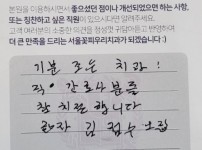 본원을 이용하시면서 좋으셨던 점이나 개선되었으면 하는 사항,
또는 칭찬하고 싶은 직원이 있으시다면 알려주세요.
고객 여러분의 소중한 의견을 정성껏 귀담아듣고 반영하여
더 큰 만족을 드리는 서울꽃피우리치과가 되겠습니다 :)
기분 좋은 치과!
직원 간호사분들
칭찬합니다
환자 김